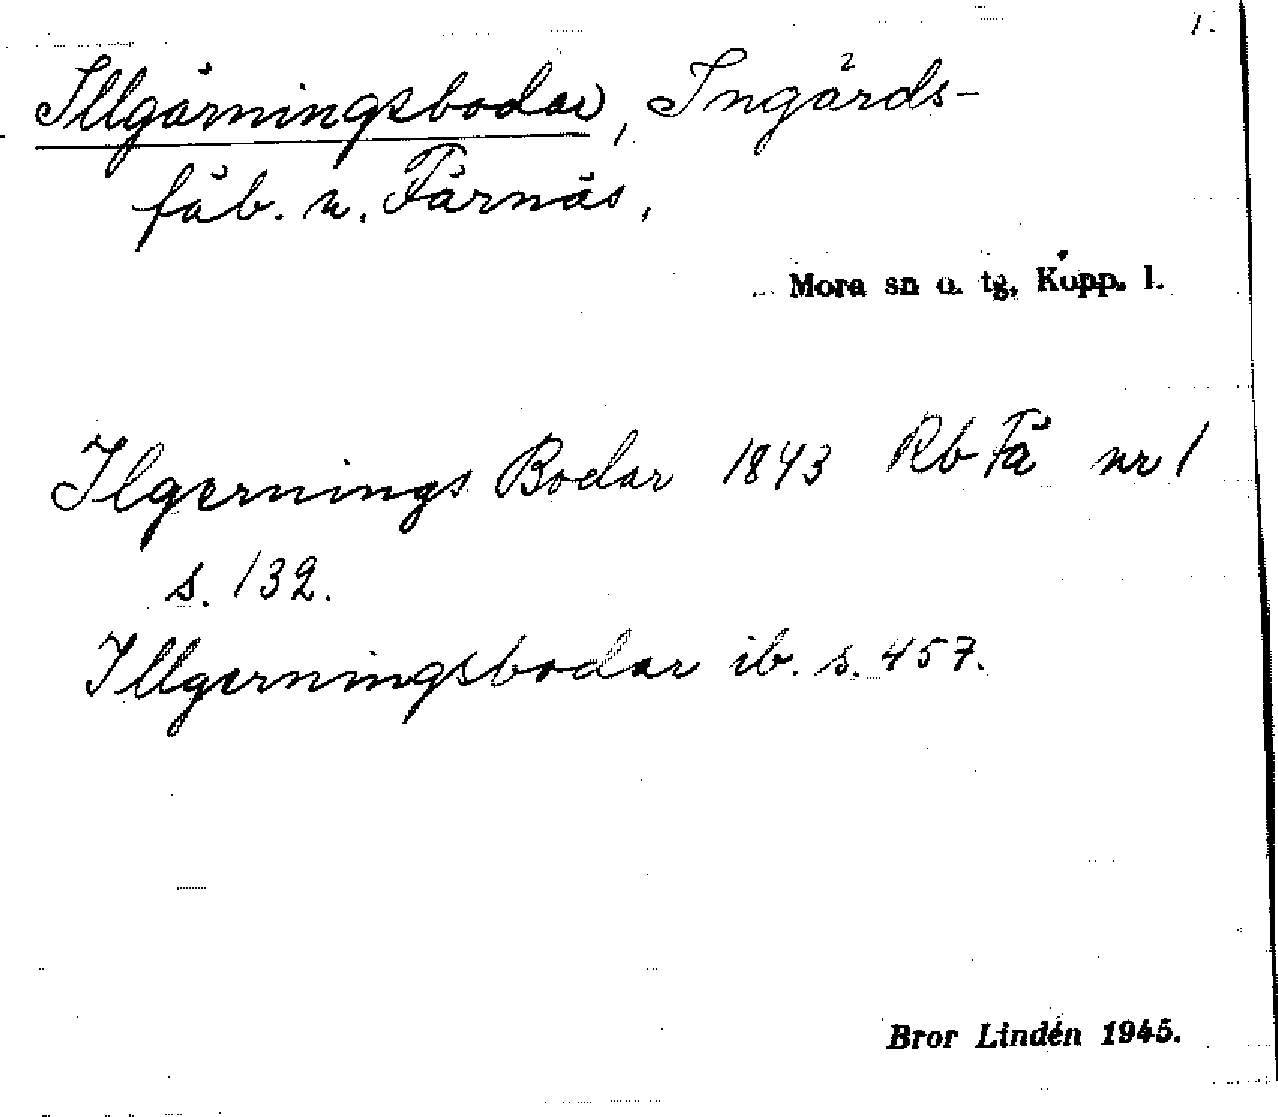 1.
Illgärningsbodar, Ingärds-
fäb. u. Färnäs,
Mora sn o. tg, Kopp. l.
Ilgernings Bodar 1843 Rb Fä nr 1
s. 132.
Illgerningsbodar ib. s. 457.
Bror Lindén 1945.